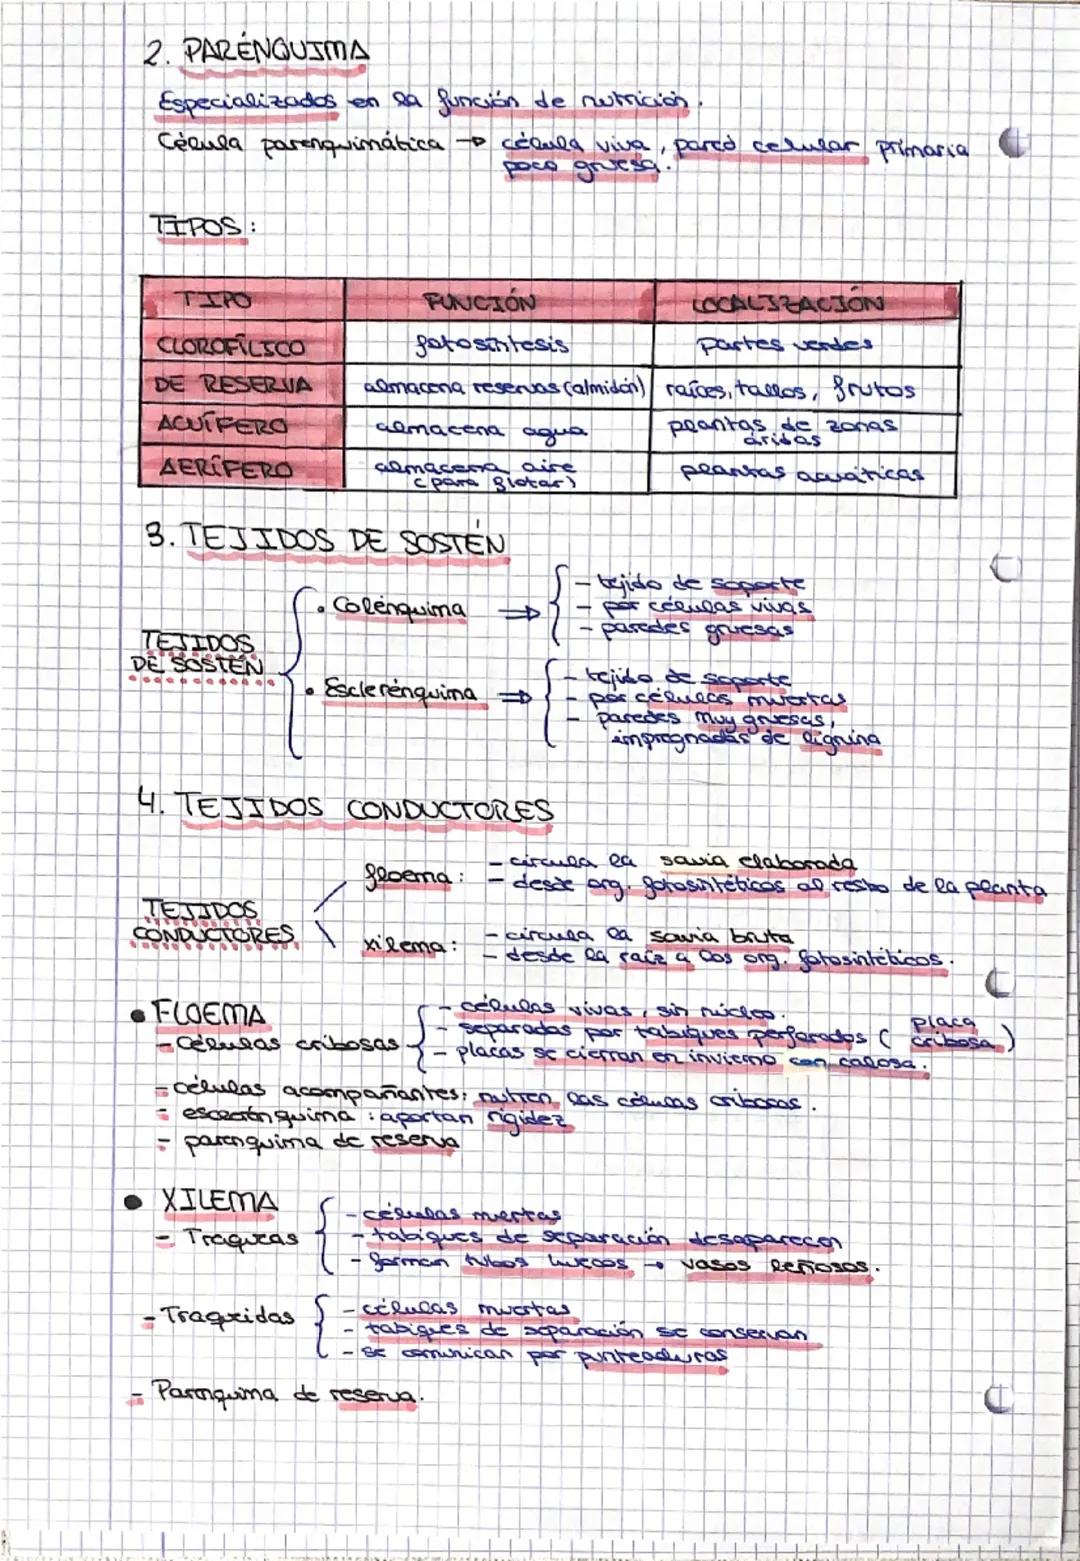 2. PARÉNQUIMA
Especializados en la función de nutrición.
Célula parenquimática → célula viva, pared celular primaria
poco gruesa.
TIPOS:
TIPO FUNCIÓN LOCALIZACIÓN
CLOROFÍLICO fotosíntesis partes verdes
DE RESERVA almacena reservas (almidón) raíces, tallos, frutos
ACUÍFERO almacena agua plantas de zonas
áridas
AERÍFERO almacena aire plantas acuáticas
(para flotar)
3. TEJIDOS DE SOSTÉN
TEJIDOS
DE SOSTÉN
• Colénquima ⇒ - tejido de soporte
- por células vivas
- paredes gruesas
• Esclerénquima ⇒ - tejido de soporte
- por células muertas
- paredes muy gruesas,
impregnadas de lignina
4. TEJIDOS CONDUCTORES
TEJIDOS
CONDUCTORES
floema: - circula la savia elaborada
- desde org. fotosintéticos al resto de la planta
xilema: - circula la savia bruta
- desde la raíz a los org. fotosintéticos.
• FLOEMA
- Células cribosas - células vivas, sin núcleo.
- separadas por tabiques perforados (placa cribosa)
- placas se cierran en invierno con calosa.
- células acompañantes: nutren las células cribosas.
- esclerénquima: aportan rigidez
- parenquima de reserva
• XILEMA
- Traqueas - células muertas
- tabiques de separación desaparecen
- forman tubos huecos → vasos leñosos.
- Traqueidas - células muertas
- tabiques de separación se conservan
- se comunican por punteaduras
- Parenquima de reserva.